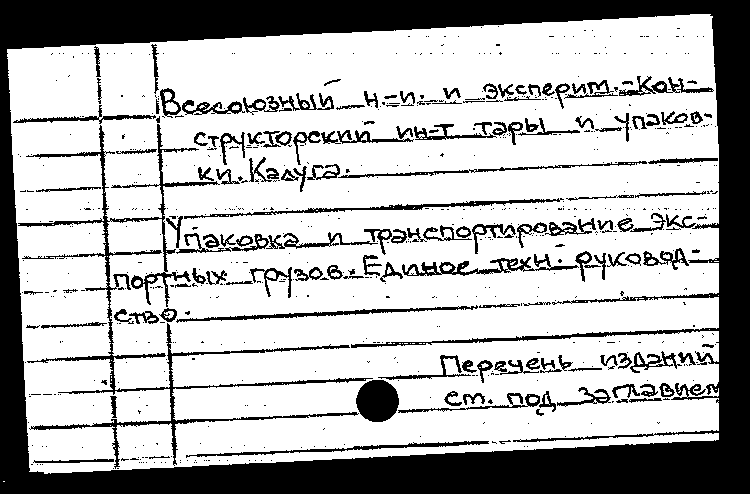 Всесоюзный н.-и. и эксперим.-кон-
структорский ин-т тары и упаков-
ки. Калуга.
Упаковка и транспортирование экс-
портных грузов. Единое техн. руковод-
ство.
Перечень изданий
см. под заглавием